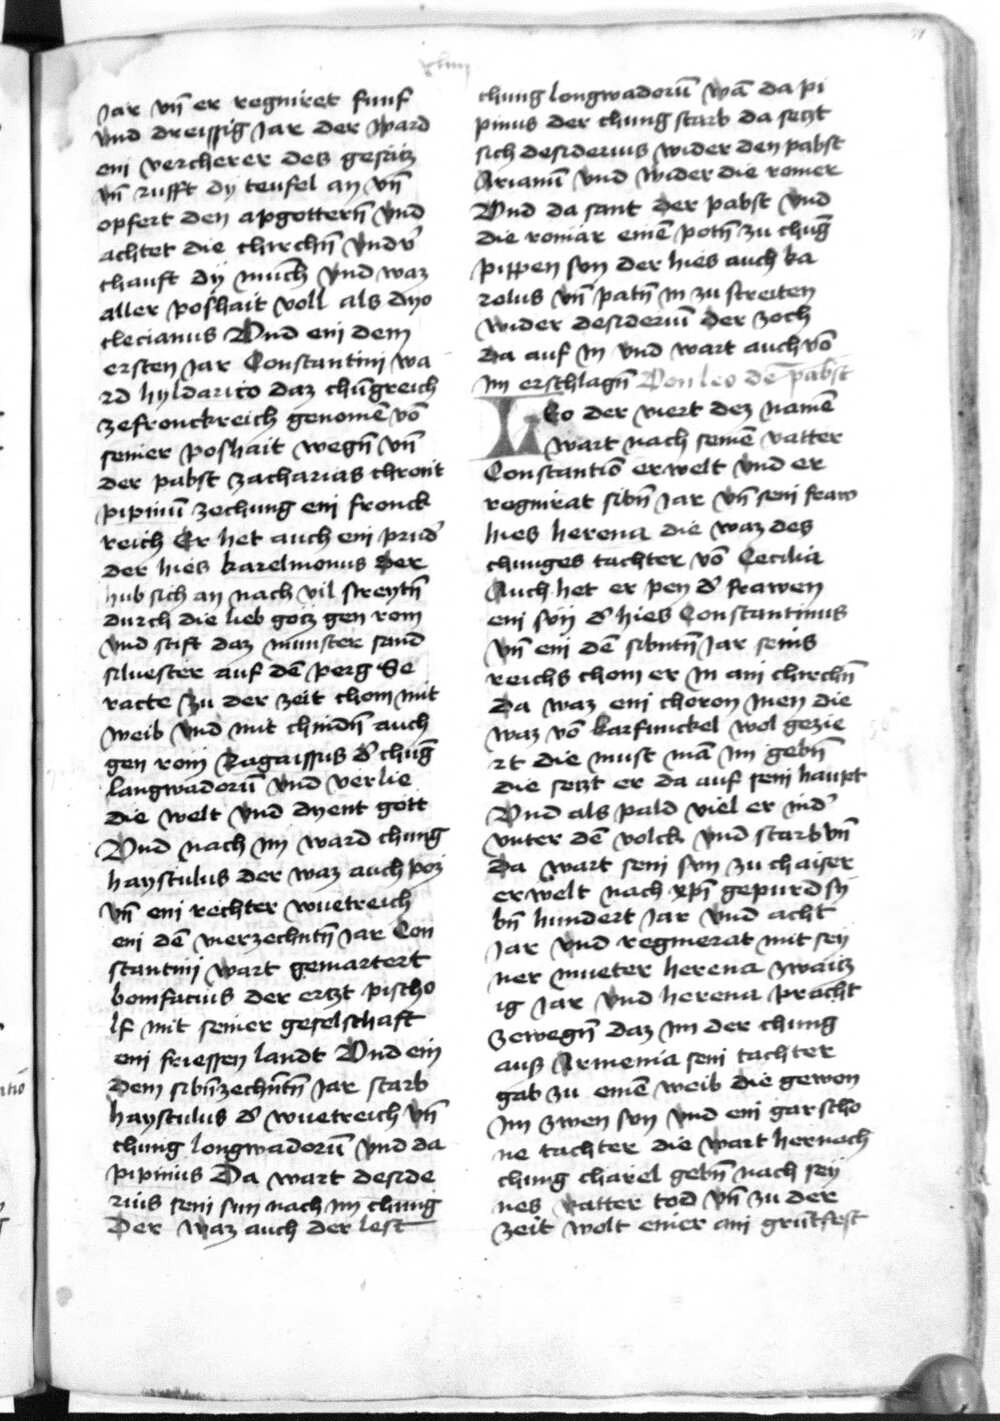 xliiij
Jar vn̄ er regniret funf
vnd dreissig Jar der ward
ein vercherer des gesätz
vn̄ rufft dÿ teufel an vn̄
opfert den apgottern̄ vnd
achtet die chirchn̄ vnd
chauft dÿ münch vnd waz
aller poshait voll als dyo
clecianus Vnd ein dem
ersten Jar Constantini wa
rd hyldarico daz chūgreich
zefronckreich genomē vō
seiner poshait wegn̄ vn̄
der pabst zacharias chront
pipinū zechung ein fronck
reich Er het auch ein prud̄
der hies karelmonus der
hub sich an nach vil streytn̄
durch die lieb gotz gen rom
vnd stift daz munster sand
siluester auf dē perg Se
racte zu der zeit chom mit
weib vnd mit chindn̄ auch
gen rom Ragaissus d̄ chūg
langwadorū vnd verlie
die welt vnd dyent gott
Vnd nach im ward chung
haystulus der waz auch poz
vn̄ ein rechter wuetreich
ein dē vierzechntn̄ Jar Con
stantinj wart gemartert
bonifacius der ertzt pischo
lf mit seiner geselschaft
ein friessen landt Vnd ein
dem sibn̄zechn̄tn̄ Jar starb
haystulus d̄ wuetreich vn̄
chung longwadorū vnd da
pipinus Da wart deside
rius sein sun nach im chung
Der waz auch der lest
chung longwadorū wā da pi
pinus der chung starb da setzt
sich desiderius wider den pabst
Arianū vnd wider die romer
Vnd da sant der pabst vnd
die romär einē potn̄ zu chūg
pippen sun der hies auch ka
rolus vn̄ patn̄ in zu streiten
wider desideriū der zoch
da auf in vnd wart auch vō
im erschlagn̄ Von leo dē pabst
Leo der viert dez namē
wart nach seinē vatter
Constantio erwelt vnd er
regnirat sibn̄ Jar vn̄ sein fraw
hies herena die waz des
chunges tachter vō Cecilia
Auch het er pey d̄ frawen
ein sun d̄ hies Constantinus
vn̄ ein dē sibntn̄ Jar seins
reichs chom er in ain chirchn̄
da waz ein choron inen die
waz vō karfunckel wol gezie
rt die must mā im gebn̄
die setzt er da auf sein haupt
Vnd als pald viel er nid̄
vnter dē volck vnd starb vn̄
da wart sein sun zu chaiser
erwelt nach xpī gepurd sy
bn̄ hundert Jar vnd acht
Jar vnd regnierat mit sey
ner mueter herena zwaitz
ig Jar vnd herena pracht
zewegn̄ daz im der chung
auß Armenia sein tachter
gab zu einē weib die gewon
im zwen sun vnd ein gar scho
ne tachter die wart hernach
chung charel gebn̄ nach sey
nes vatter tod vn̄ zu der
zeit wolt einer ain grūtfest